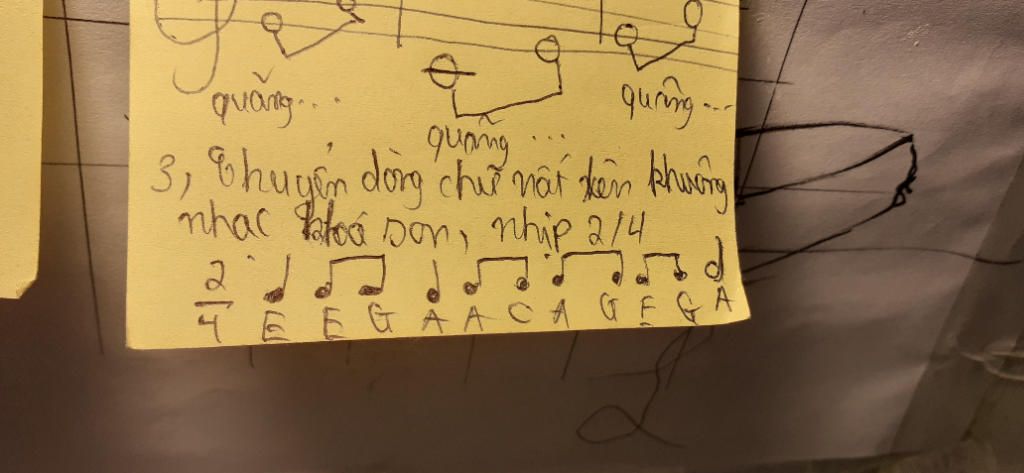 quãng...
quãng...
quãng...
3, Chuyển dòng chữ nốt lên khuông
nhạc khoá son, nhịp 2/4
2
4
E E G A A C A G E G A